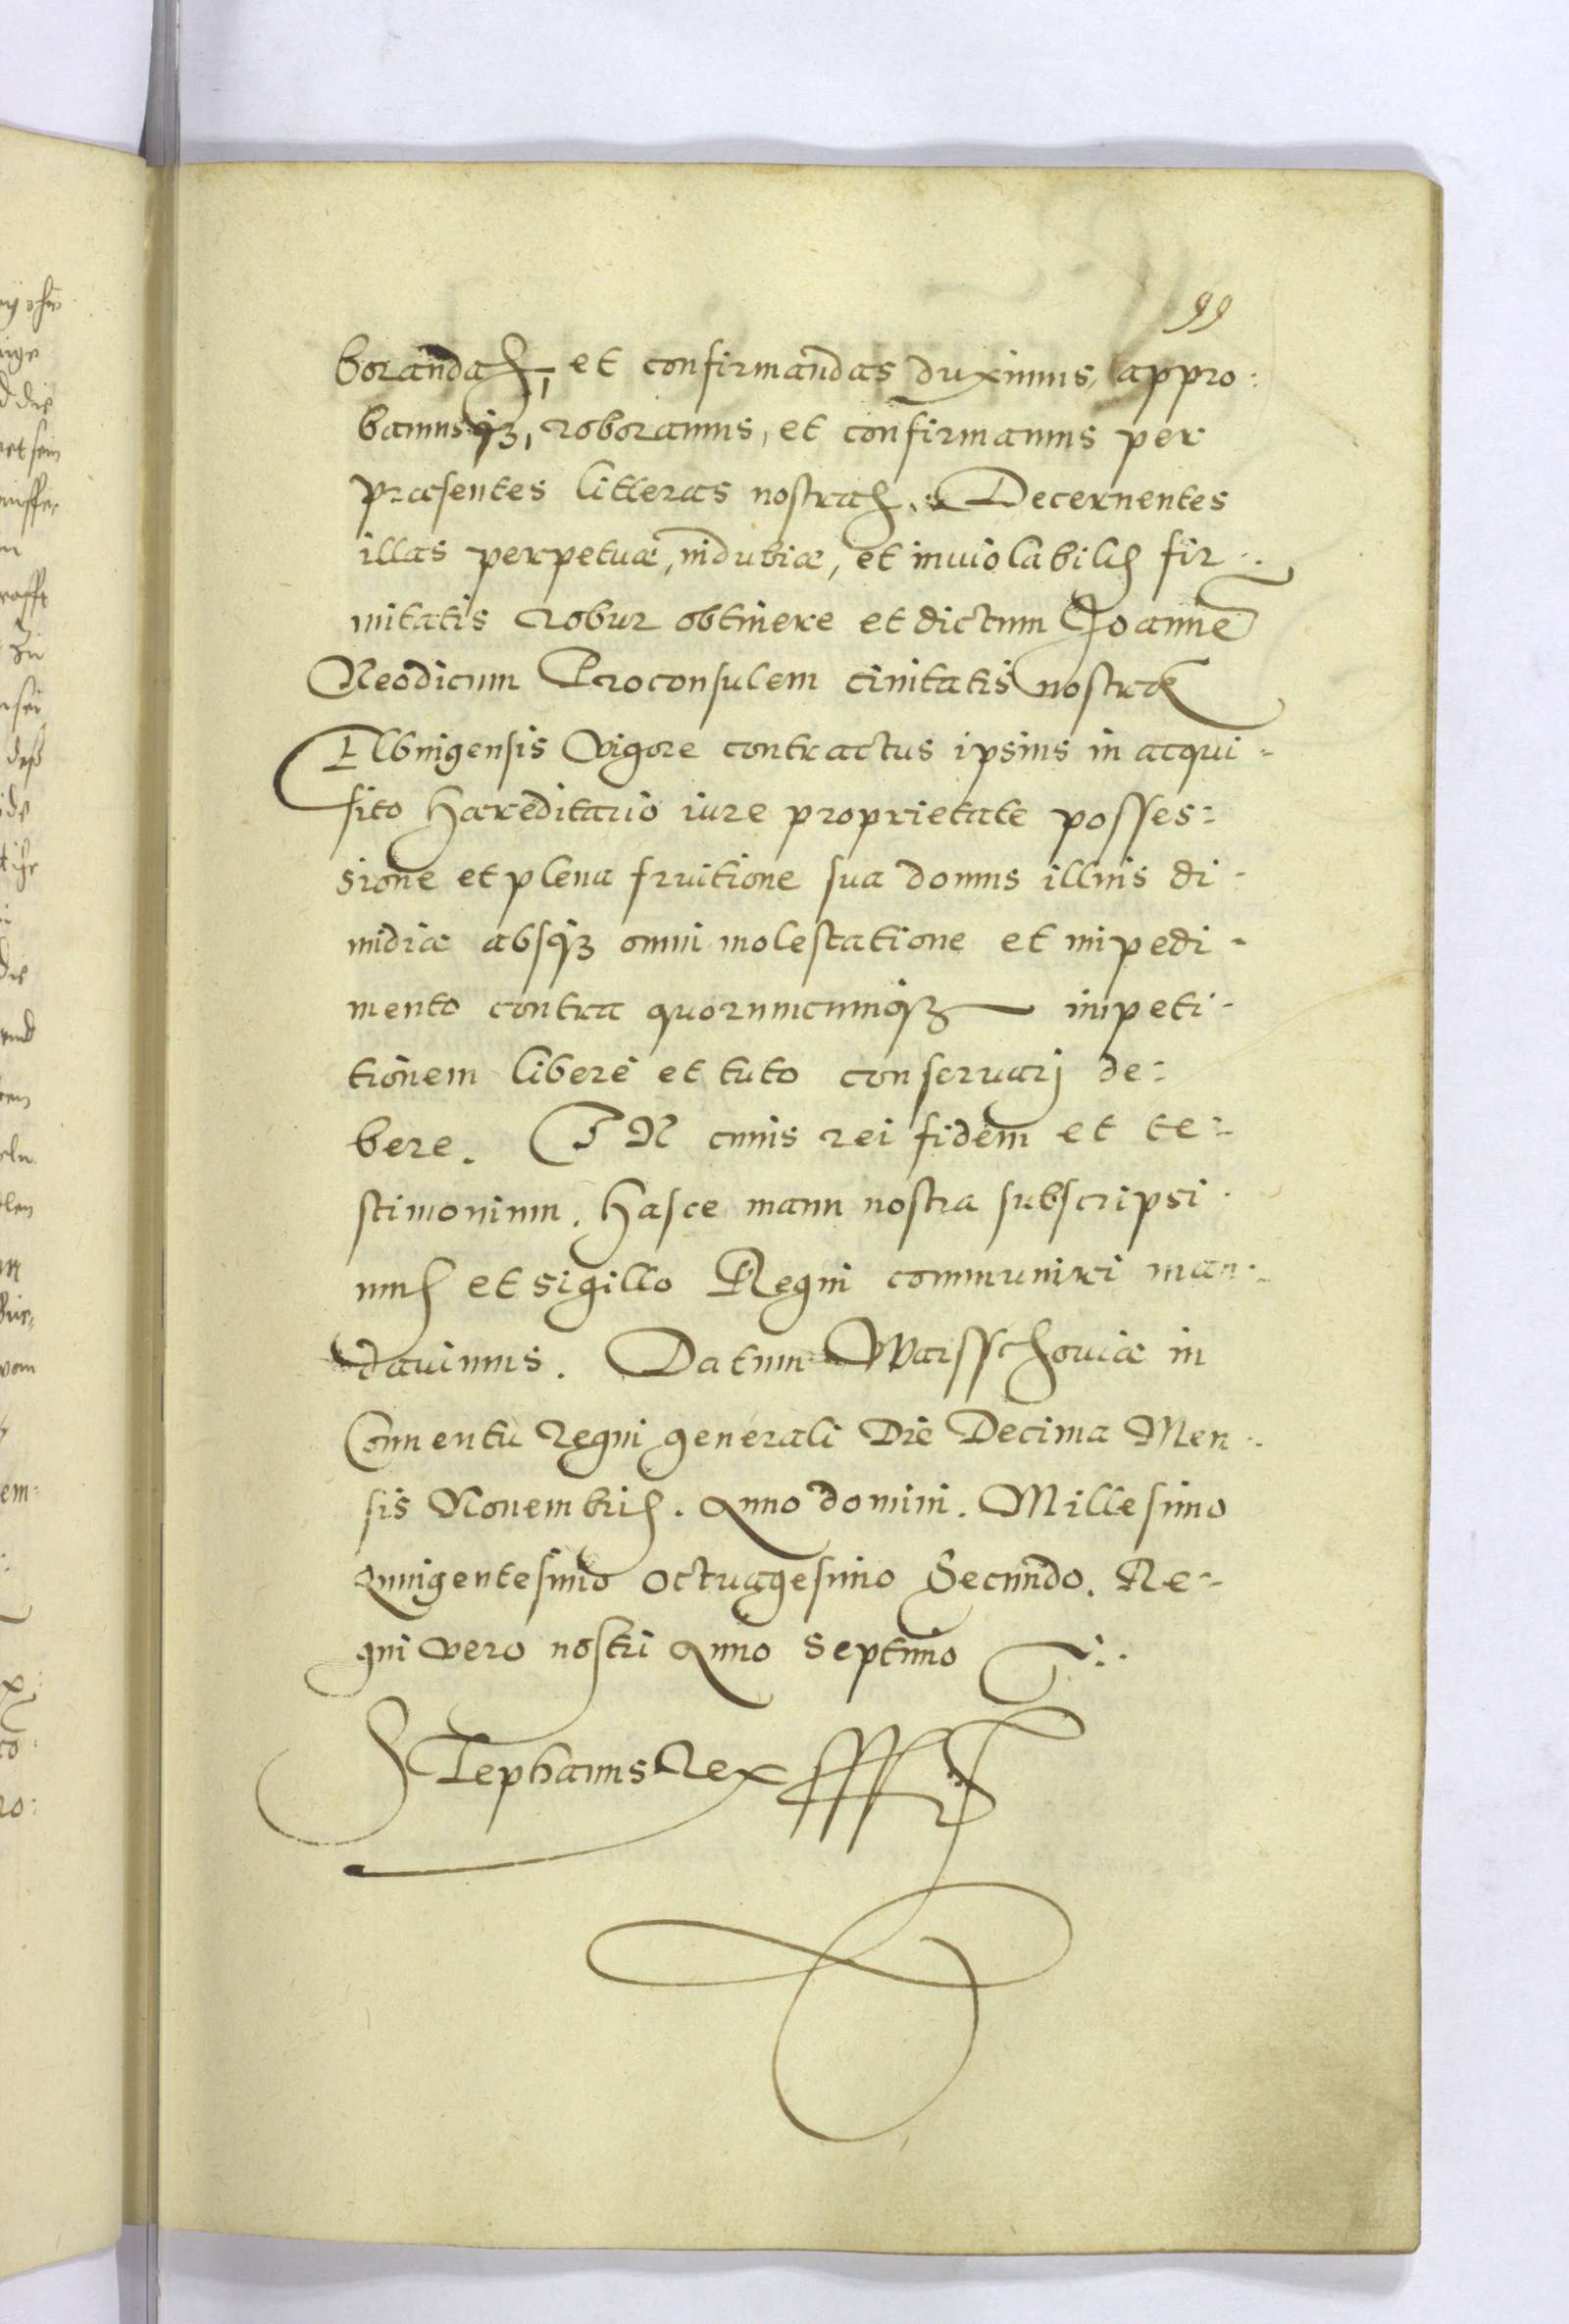 99
borandas, et confirmandas duximus, appro:
bamusq3, roboramus, et confirmamus per
præsentes litteras nostras. Decernentes
illas perpetuæ, indubiæ, et inuiolabilis fir:
mitatis robur obtinere et dictum Joannē
Neodicum Proconsulem ciuitatis nostræ
Elbingensis vigore contractus ipsius in acqui-
sito Hæreditario iure proprietate posses:
sione et plena fruitione sua domus illius di-
midiæ absq3 omni molestatione et impedi-
mento contra quorumcumq3 impeti-
tionem libere et tuto conseruarj de:
bere. IN cuius rei fidem et te:
stimonium. Hasce manu nostra subscripsi-
mus et sigillo Regni communiri man:
dauimus. Datum Warsschouiæ in
Conuentu regni generali Die Decima Men:
sis Nouembris. Anno domini. Millesimo
Quingentesimo octuagesimo Secundo. Re:
gni vero nostri Anno Septimo
Stephanus Rex